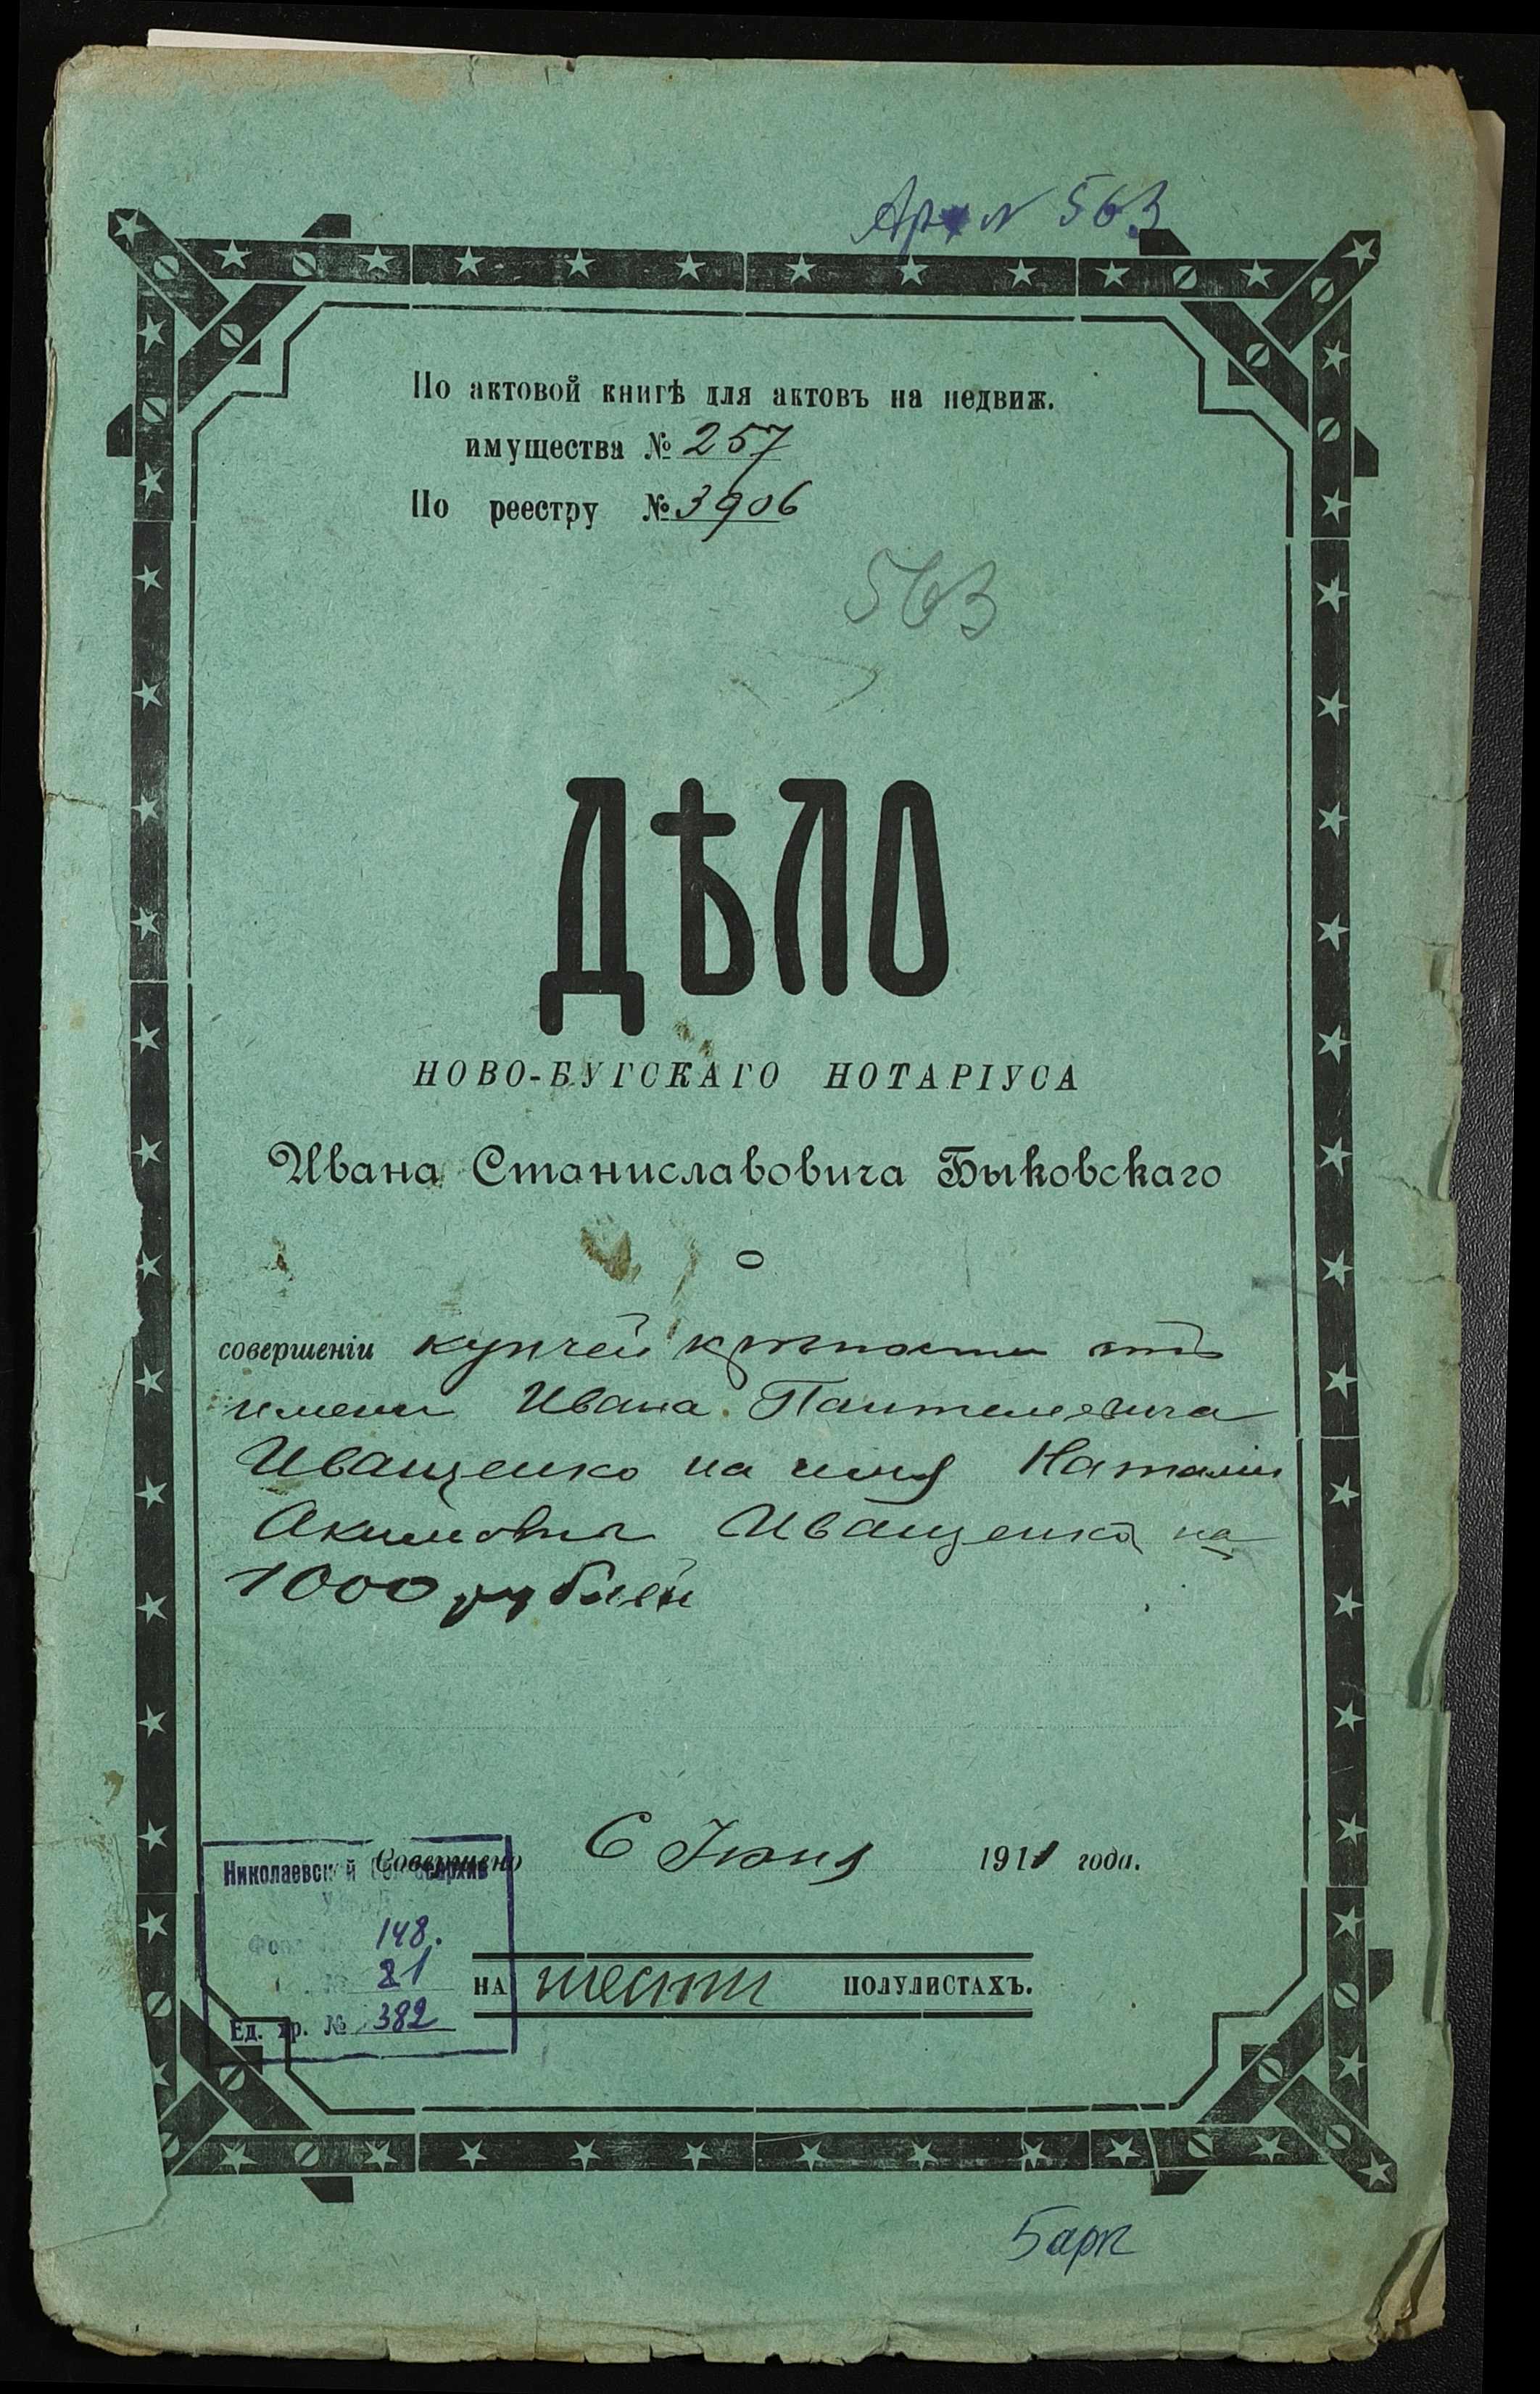 Арх № 563
По актовой книгѣ для актовъ на недвиж.
имущества № 257
По реестру № 3906
563
ДѢЛО
НОВО-БУГСКАГО НОТАРІУСА
Ивана Станиславовича Быковскаго
О
совершеніи купчей крѣпости отъ
имени Ивана Пантелеевича
Иващенко на имя Наталіи
Акимовны Иващенко на
1000 рублей
Совершено 6 Іюня 1911 года.
Николаевский архив
148.
№ 21
Ед. хр. № 382
НА шести ПОЛУЛИСТАХЪ.
5 арк